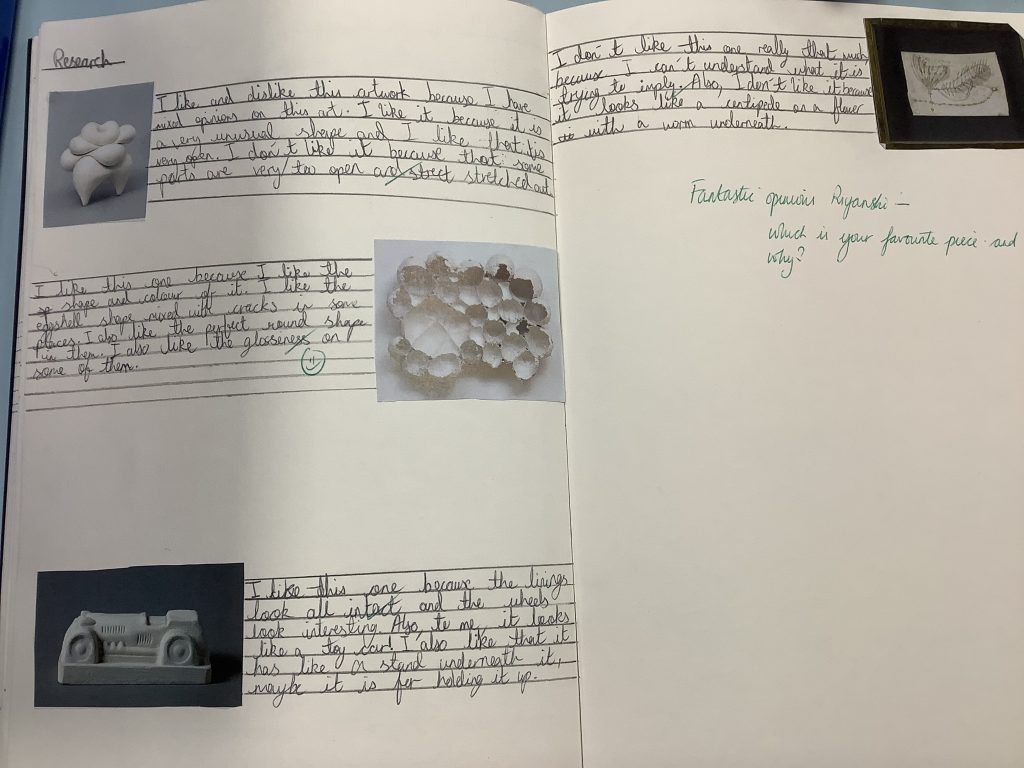 Research
I like and dislike this artwork because I have
mixed opinions on this art. I like it because it is
a very unusual shape and I like that it is
very open. I don't like it because that some
parts are very too open and street stretched out
I like this one because I like the
shape and colour off it. I like the
eggshell shape mixed with cracks in some
places. I also like the perfect round shape
in them. I also like the glosseness on
some of them.
I like this one because the linings
look all intact and the wheels
look interesting. Also to me, it looks
like a toy car! I also like that it
has like a stand underneath it,
maybe it is for holding it up.
I don't like this one really that much
because I can't understand what it is
trying to imply. Also, I don't like it because
it looks like a centipede on a flower
with a worm underneath.
Fantastic opinions Riyanshi –
which is your favourite piece and
why?